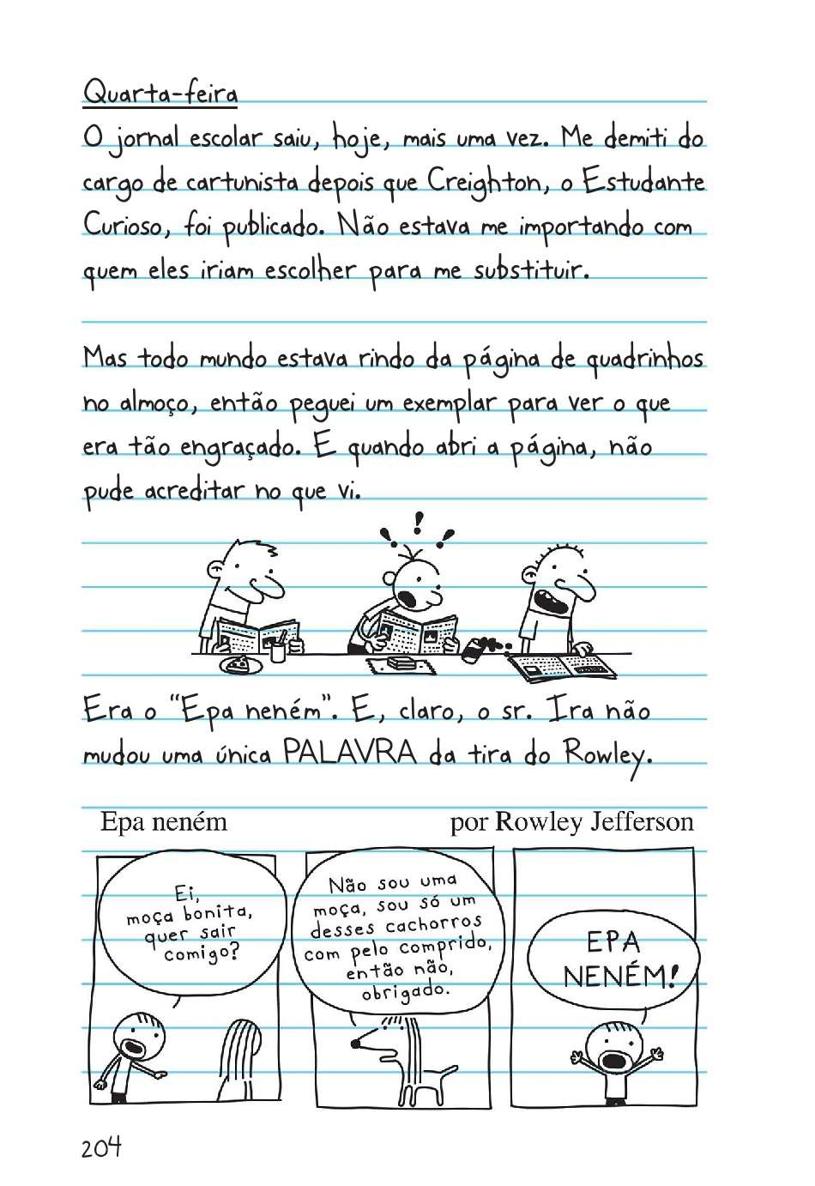 Quarta-feira
O jornal escolar saiu, hoje, mais uma vez. Me demiti do
cargo de cartunista depois que Creighton, o Estudante
Curioso, foi publicado. Não estava me importando com
quem eles iriam escolher para me substituir.
Mas todo mundo estava rindo da página de quadrinhos
no almoço, então peguei um exemplar para ver o que
era tão engraçado. E quando abri a página, não
pude acreditar no que vi.
! ! !
Era o “Epa neném”. E, claro, o sr. Ira não
mudou uma única PALAVRA da tira do Rowley.
Epa neném por Rowley Jefferson
Ei,
moça bonita,
quer sair
comigo?
Não sou uma
moça, sou só um
desses cachorros
com pelo comprido,
então não,
obrigado.
EPA
NENÉM!
204